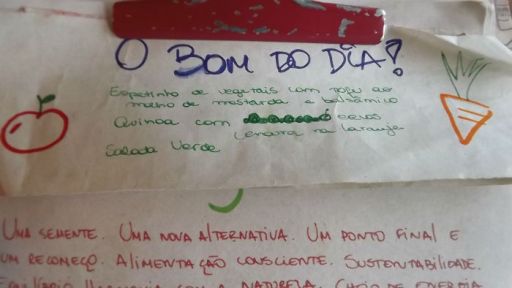 O BOM DO DIA!
Espetinho de vegetais com tofu ao
molho de mostarda e balsâmico
Quinoa com ervas
Cenoura na laranja
Salada Verde
UMA SEMENTE. UMA NOVA ALTERNATIVA. UM PONTO FINAL E
UM RECOMEÇO. ALIMENTAÇÃO CONSCIENTE. SUSTENTABILIDADE.
EQUILÍBRIO HARMONIA COM A NATUREZA. CHEIO DE ENERGIA